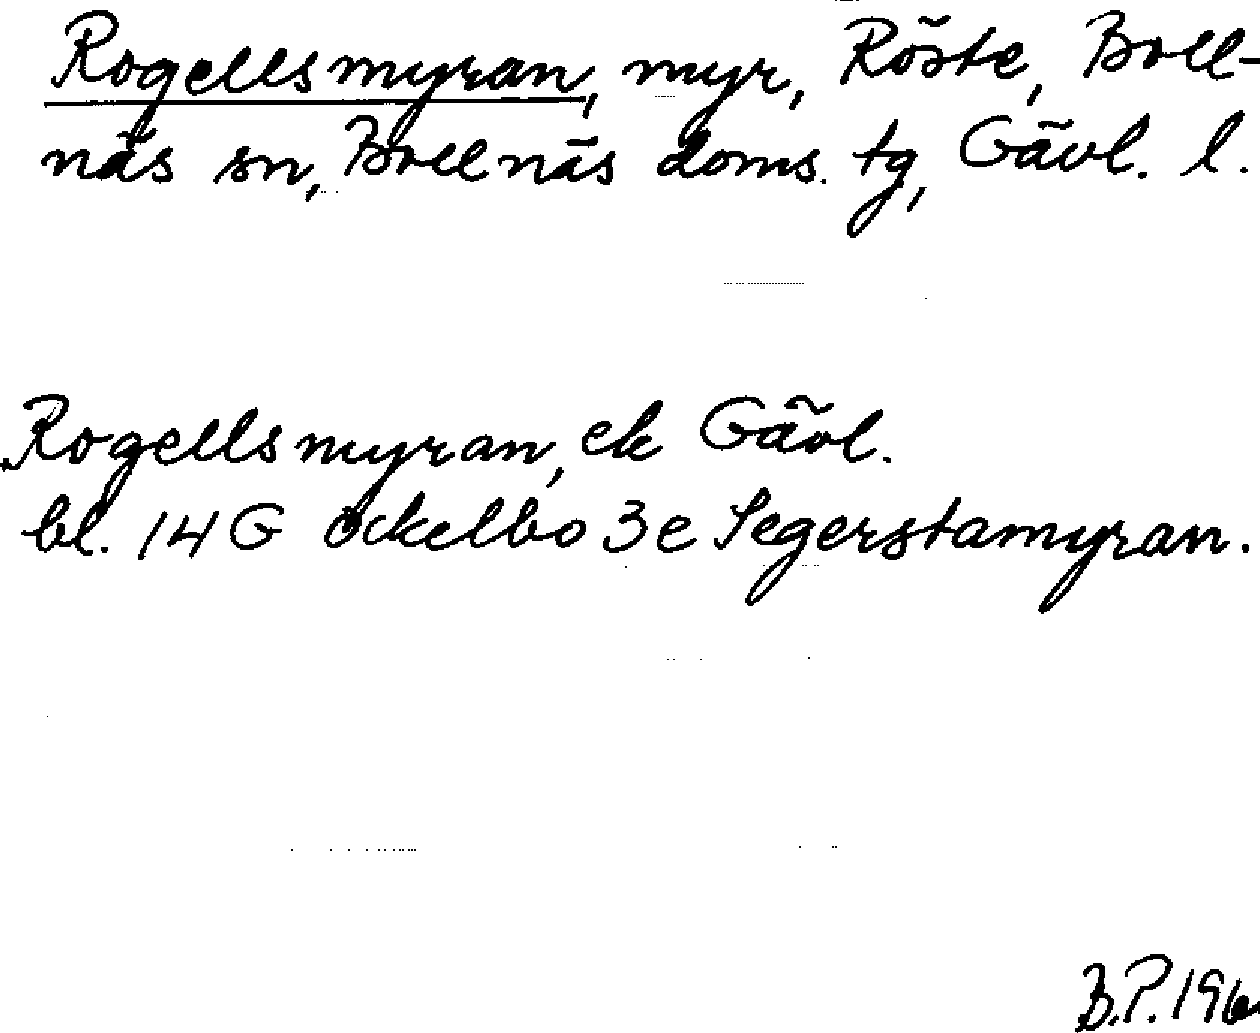 Rogellsmyran, myr, Röste, Boll-
näs sn, Bollnäs doms. tg, Gävl. l.
Rogellsmyran, ek Gävl.
bl. 14 G Ockelbo 3 e Segerstamyran.
B.P.